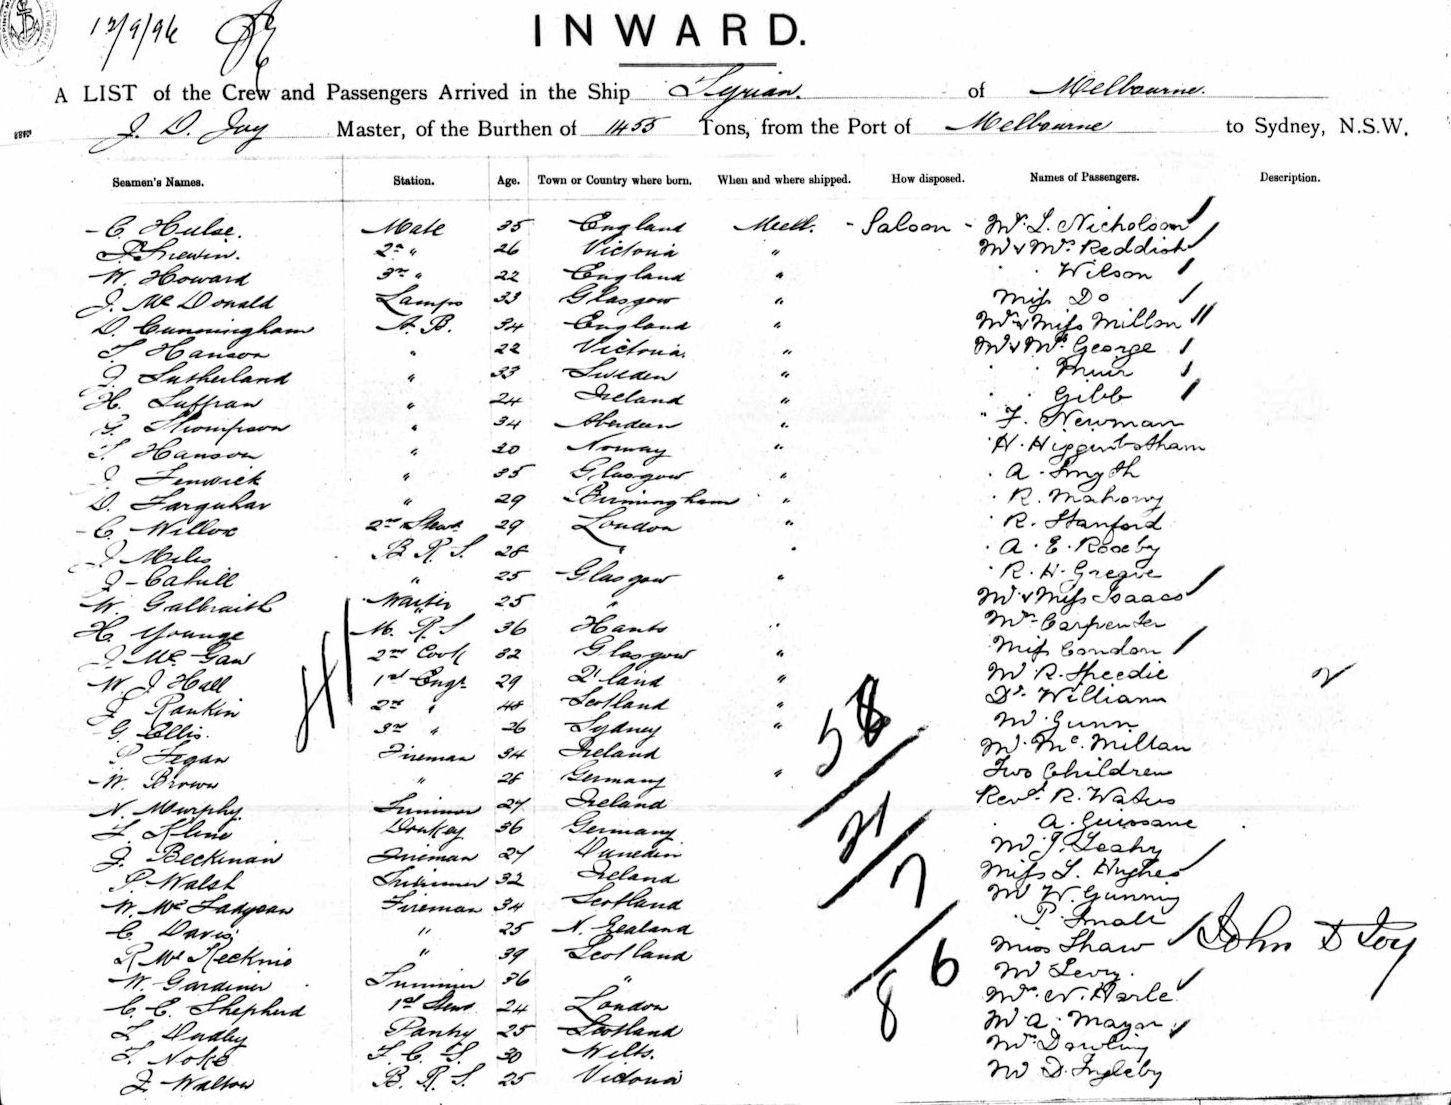 12/9/96
INWARD.
A LIST of the Crew and Passengers Arrived in the Ship Syrian. of Melbourne.
J. D. Joy Master, of the Burthen of 1455 Tons, from the Port of Melbourne to Sydney, N.S.W.
Seamen's Names. Station. Age. Town or Country where born. When and where shipped. How disposed. Names of Passengers. Description.
C. Hulse. Mate 35 England Melb. - Saloon - Mr. L. Nicholson
2nd " 26 Victoria " Mr & Mrs Reddish
W. Howard 3rd " 22 England " " " Wilson
J. McDonald Lamps 33 Glasgow " Miss Do
D. Cunningham A. B. 34 England " Mr & Miss Millon
T. Hanson " 22 Victoria. " Mr & Mrs George
J. Sutherland " 33 Sweden " " " Muir
H. Luffran " 24 Ireland " " " Gibb
G. Thompson " 34 Aberdeen " " F. Newman
T. Hanson " 20 Norway " " H. Higginbotham
J. Fenwick " 35 Glasgow " " A. Smyth
D. Farquhar " 29 Birmingham " " R. Mahony
C. Willox 2nd Stewd 29 London " " R. Stanford
J. Miles B. R. S. 28 " " " A. E. Roseby
J. Cahill " 25 Glasgow " " R. H. Gregve
W. Galbraith Waiter 25 " Mr & Miss Isaacs
H. Younge M. R. S 36 Hants " Mrs Carpenter
J. McGaw 2nd Cook 32 Glasgow " Miss Condon
W. J. Hall 1st Engr. 29 Q'land " Mr R. Speedie
J. Rankin 2nd " 48 Scotland " Dr. Williams
G. Ellis. 3rd " 26 Sydney " Mr. Gunn
P. Fegan Fireman 34 Ireland Mr. McMillan
W. Brown " 28 Germany " Two Children
N. Murphy Trimmer 27 Ireland Revd. R. Waters
F. Kline Donkey 36 Germany " A. Guissane
J. Beckman Fireman 27 Dunedin Mr J. Leahy
P. Walsh Trimmer 32 Ireland Miss L. Hughes
W. McFadyean Fireman 34 Scotland Mr W. Gunning
C. Davis " 25 N. Zealand " P. Small
R. McKechnie " 39 Scotland Miss Shaw
W. Gardiner Trimmer 36 " Mr Levy.
C. E. Shepherd 1st Stewd 24 London Mrs. N. Harle
L. Dudley Pantry 25 Scotland Mr A. Mayor
F. Noke F. C. S. 30 Wilts. Mrs Dowling
J. Walton B. R. S. 25 Victoria Mr D. Ingleby
41
58
21
7
8 6
John D Joy